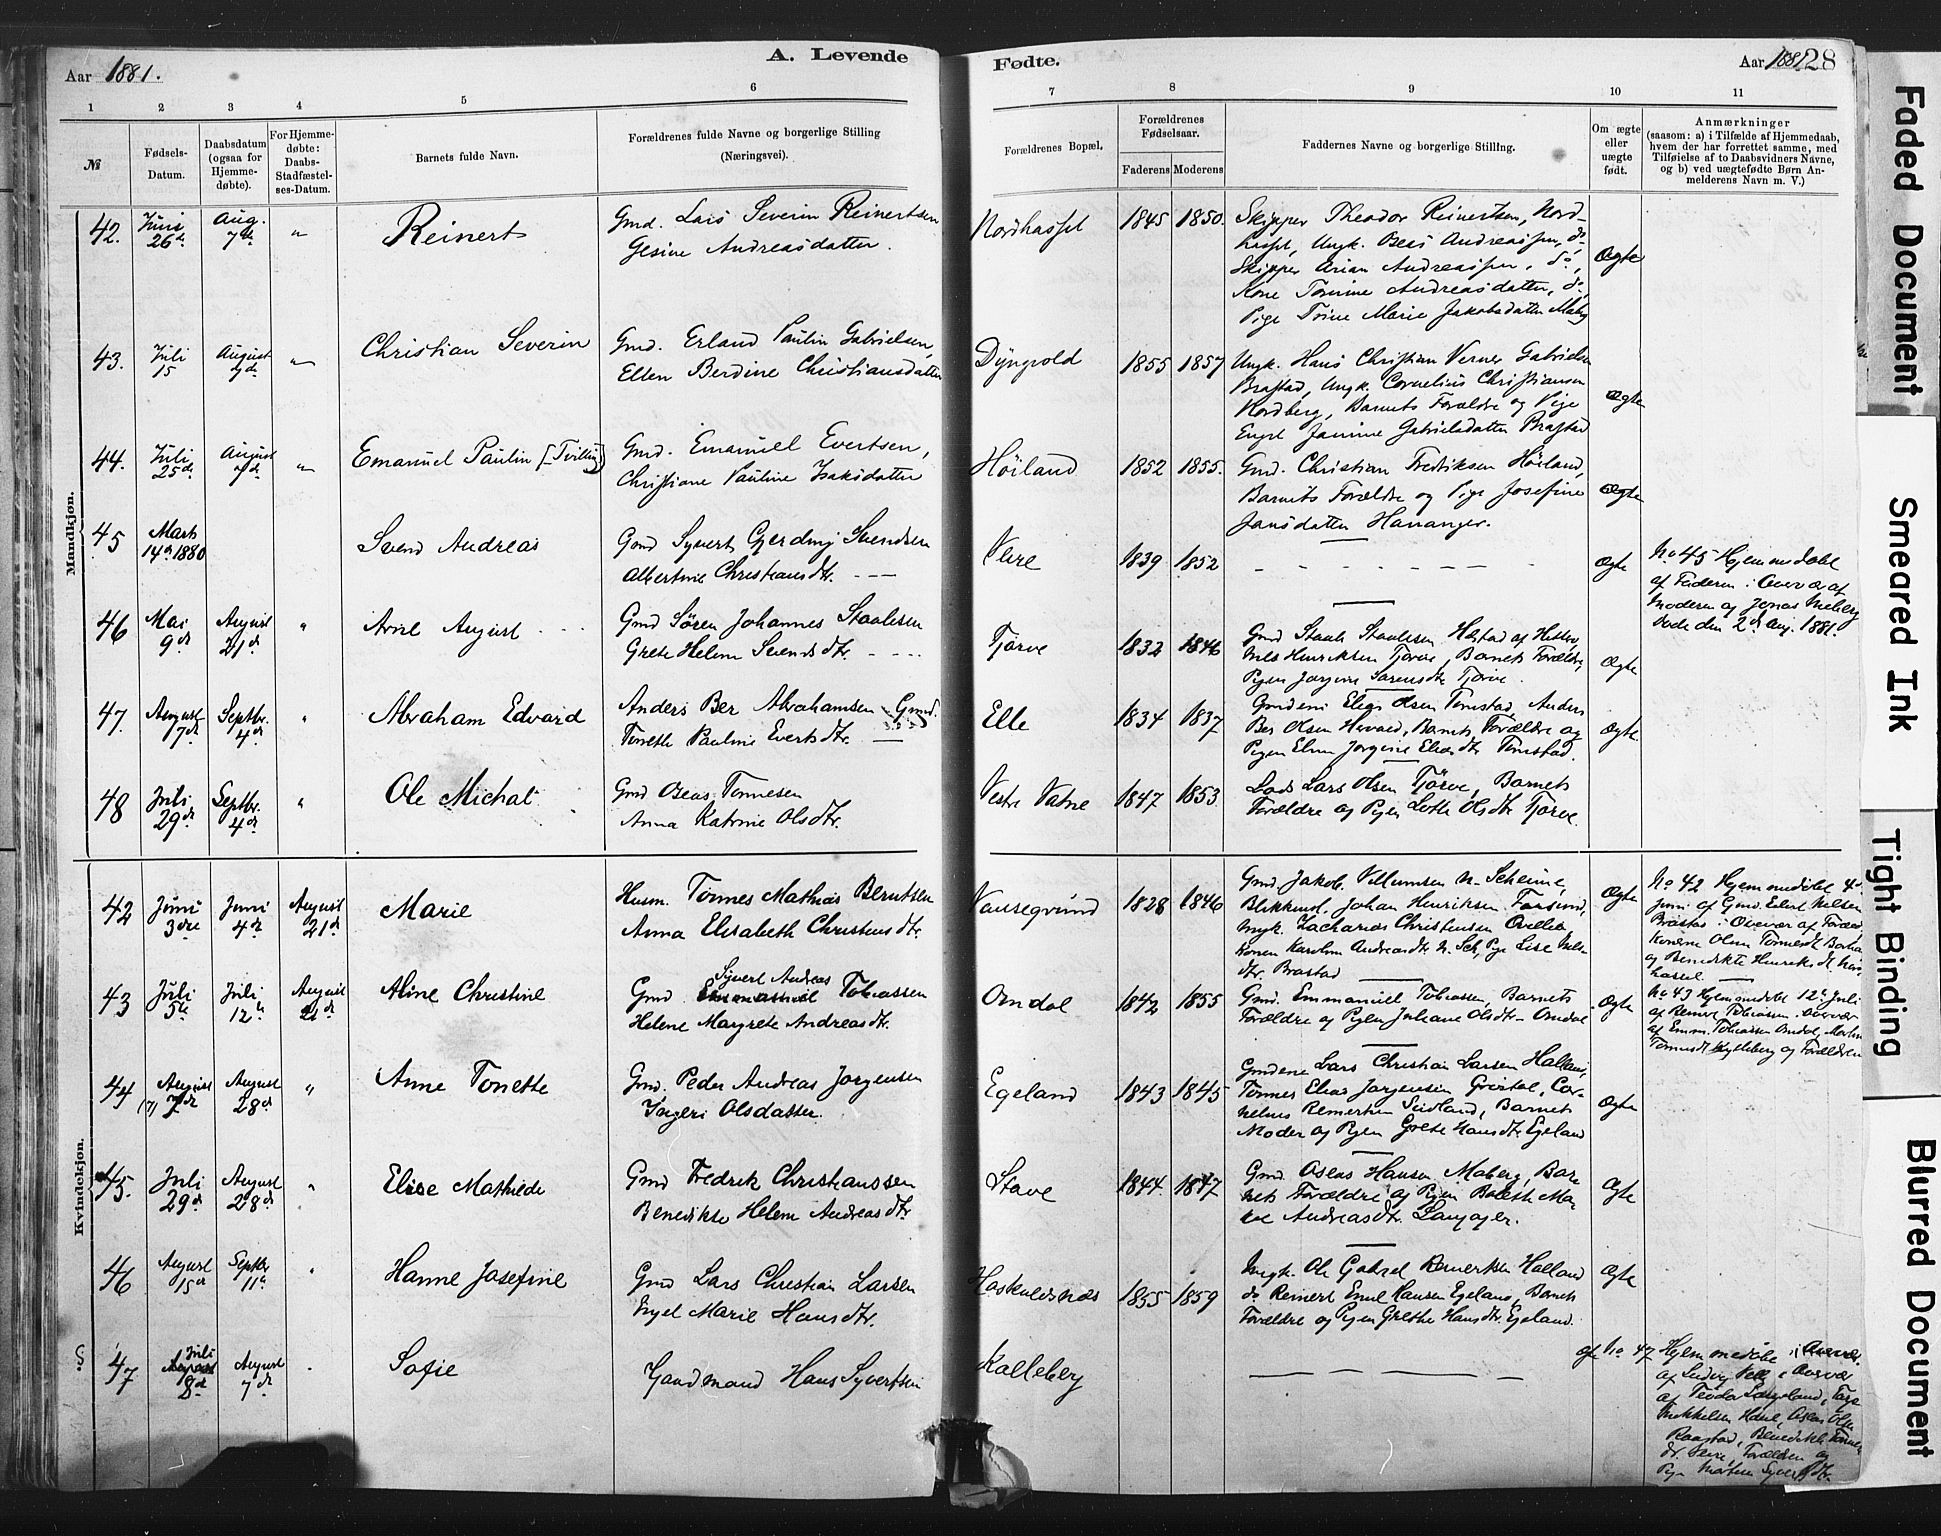 A. Levende
Fødte.
Aar 1881.
Aar 1881
28
1 2 3 4 5 6 7 8 9 10 11
№
Fødsels-
Datum.
Daabsdatum
(ogsaa for
Hjemme-
døbte).
For Hjemme-
døbte:
Daabs-
Stadfæstel-
ses-Datum.
Barnets fulde Navn.
Forældrenes fulde Navne og borgerlige Stilling
(Næringsvei).
Forældrenes Bopæl.
Forældrenes
Fødselsaar.
Faderens Moderens
Faddernes Navne og borgerlige Stilling.
Om ægte
eller
uægte
født.
Anmærkninger
(saasom: a) i Tilfælde af Hjemmedaab,
hvem der har forrettet samme, med
Tilføielse af to Daabsvidners Navne,
og b) ved uægtefødte Børn An-
melderens Navn m. V.)
Mandkjøn.
42. Juni 26de Aug. 7de " Reinert
Gmd. Lars Severin Reinertsen
Gesine Andreasdatter.
Nordhassel 1845 1850.
Skipper Theodor Reinertsen, Nord-
hassel, Ungk. Beas Andreassen, do,
Skipper Arian Andreassen, do,
Kone Tomine Andreasdatter, do,
Pige Trine Marie Jakobsdatter Maberg
Ægte
43. Juli 15 August 7de " Christian Severin
Gmd. Erland Paulin Gabrielsen,
Ellen Berdine Christiansdatter
Dyngvold 1855 1857
Ungk. Hans Christian Verner Gabrielsen
Brastad, Ungk. Cornelius Christiansen
Nordberg, Barnets Forældre og Pige
Engel Janine Gabrielsdatter Brastad
Ægte
44. Juli 25de August 7de " Emanuel Paulin [Tvilling]
Gmd. Emanuel Evertsen,
Christiane Pauline Isaksdatter
Høiland 1852 1855.
Gmd. Christian Fredriksen Høiland,
Barnets Forældre og Pige Josefine
Jansdatter Hananger.
Ægte
45 Marts 14de 1880 Svend Andreas
Gmd Syvert Gjerding Svendsen
Albertine Christiansdtr.
Vere 1839 1852
Ægte
No 45 Hjemmedøbt
af Faderen i Overvær af
Moderen og Jonas Meberg
Døde den 2de Aug. 1881.
46 Mai 9de August 21de " Arne August
Gmd Søren Johannes Staalesen
Grete Helene Svendsdtr.
Tjørve 1832 1846
Gmd Staale Staalesen
Nils Henriksen Tjørve, Barnets Forældre,
Pigen Jørgine Sørensdtr Tjørve.
Ægte
47. August 7de Septbr. 4de " Abraham Edvard
Anders Ber Abrahamsen Gmd.
Tonette Pauline Evertsdtr.
Elle 1834 1837
Gmdene Elias Olsen Tomstad, Anders
Ber Olsen Hervold, Barnets Forældre og
Pigen Elene Jørgine Eliasdtr Tomstad.
Ægte
48 Juli 29de Septbr. 4de " Ole Michal
Gmd Oseas Tønnesen
Anna Katrine Olsdtr.
Vestre Vatne 1847 1853.
Lods Lars Olsen Tjørve, Barnets
Forældre og Pigen Lotte Olsdtr Tjørve.
Kvindekjøn.
42 Juni 3die Juni 4de August 21de Marie
Husm. Tønnes Mathias Berntsen
Anna Elisabeth Christensdtr.
Vansegrund 1828 1846
Gmd. Jakob Villumsen N. Skeime,
Blikkensl. Johan Henriksen Farsund,
Ungk. Zacharias Christensen
Konen Karoline Andreasdtr N. Sk, Pige Lise Nils-
dtr. Brastad
Ægte
No 42 Hjemmedøbt 4de
Juni af Gmd. Eilert Nilsen
Brastad i Overvær af Forældre,
Konerne Olene Tønnesdtr
og Benedikte Henriksdtr
hassel.
43 Juli 5te Juli 12te August 21de Aline Christine
Syvert Andreas
Gmd Emmanuel Tobiassen
Helene Margrete Andreasdtr.
Omdal 1842 1855
Gmd. Emmanuel Tobiassen, Barnets
Forældre og Pigen Juliane Olsdtr Omdal
Ægte
No 43 Hjemmedøbt 12te Juli
af Reinert Tobiassen i Overvær
af Emm. Tobiassen Omdal,
Tønnesdtr og Forældren
44 (7) August 7de August 28de " Anne Tonette
Gmd. Peder Andreas Jørgensen
Ingeri Olsdatter.
Egeland 1843 1845
Gmdene Lars Christian Larsen
Tønnes Elias Jørgensen Cor-
nelius Reinertsen Barnets
Moder og Pigen Grete Hansdtr. Egeland
Ægte
45. Juli 29de August 28de " Elise Mathilde
Gmd Fredrik Christianssen
Benedikte Helene Andreasdtr.
Stave 1844. 1847
Gmd. Oseas Hansen Maberg, Bar-
nets Forældre og Pigen
Andreasdtr. Langager.
Ægte
46 August 15de Septbr 11te " Hanne Josefine
Gmd Lars Christian Larsen
Engel Marie Hansdtr.
Haskuldsnæs 1855 1859
Ungk. Ole Gabriel Reinertsen
do Reinert Emil Hansen Egeland, Barnets
Forældre og Pigen Grethe Hansdtr. Egeland.
Ægte
47 Juli August 8de August 7de Sofie
Gaardmand Hans Syvertsen
Kalleberg
No 47 Hjemmedøbt i Overvær
af Ludvig i Overvær
af
Mikkelsen Oseas Olsen
Raastad, Benedikte Tønnes
dtr. Forældren og
Pige Syvertsdtr.
Faded Document
Smeared Ink
Tight Binding
Blurred Document